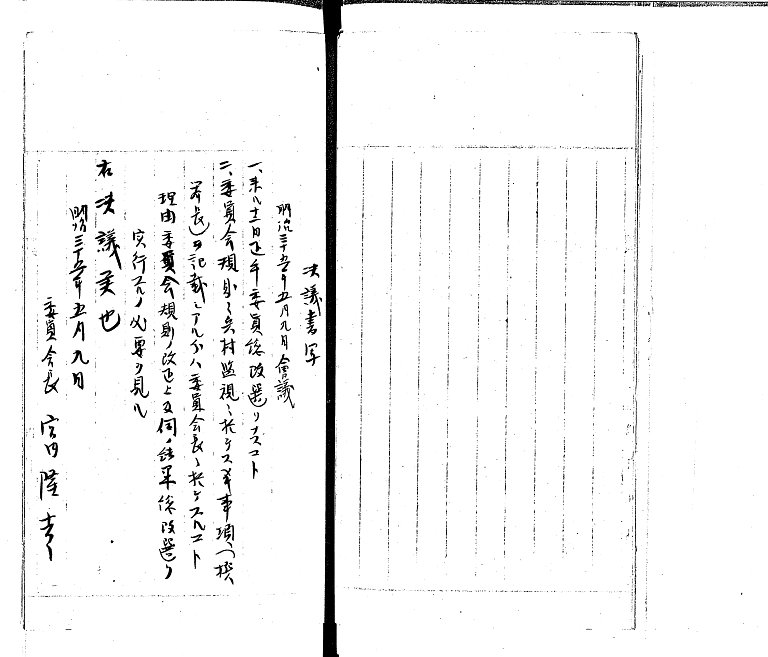 決議書写
明治三十五年五月九日會議
一、来ル十二日迄本委員総改選リナスコト
二、委員会規則ニ矢村監視ニ於ケス本事項、(撰
挙長)ヲ記載シアル分ハ委員会長ニ於ケスルコト
理由委員会規則ノ改正上及伺ノ結果総改選ヲ
実行スルノ必要ヲ見ル
右決議候也
明治三十五年五月九日
委員会長 宮内隆